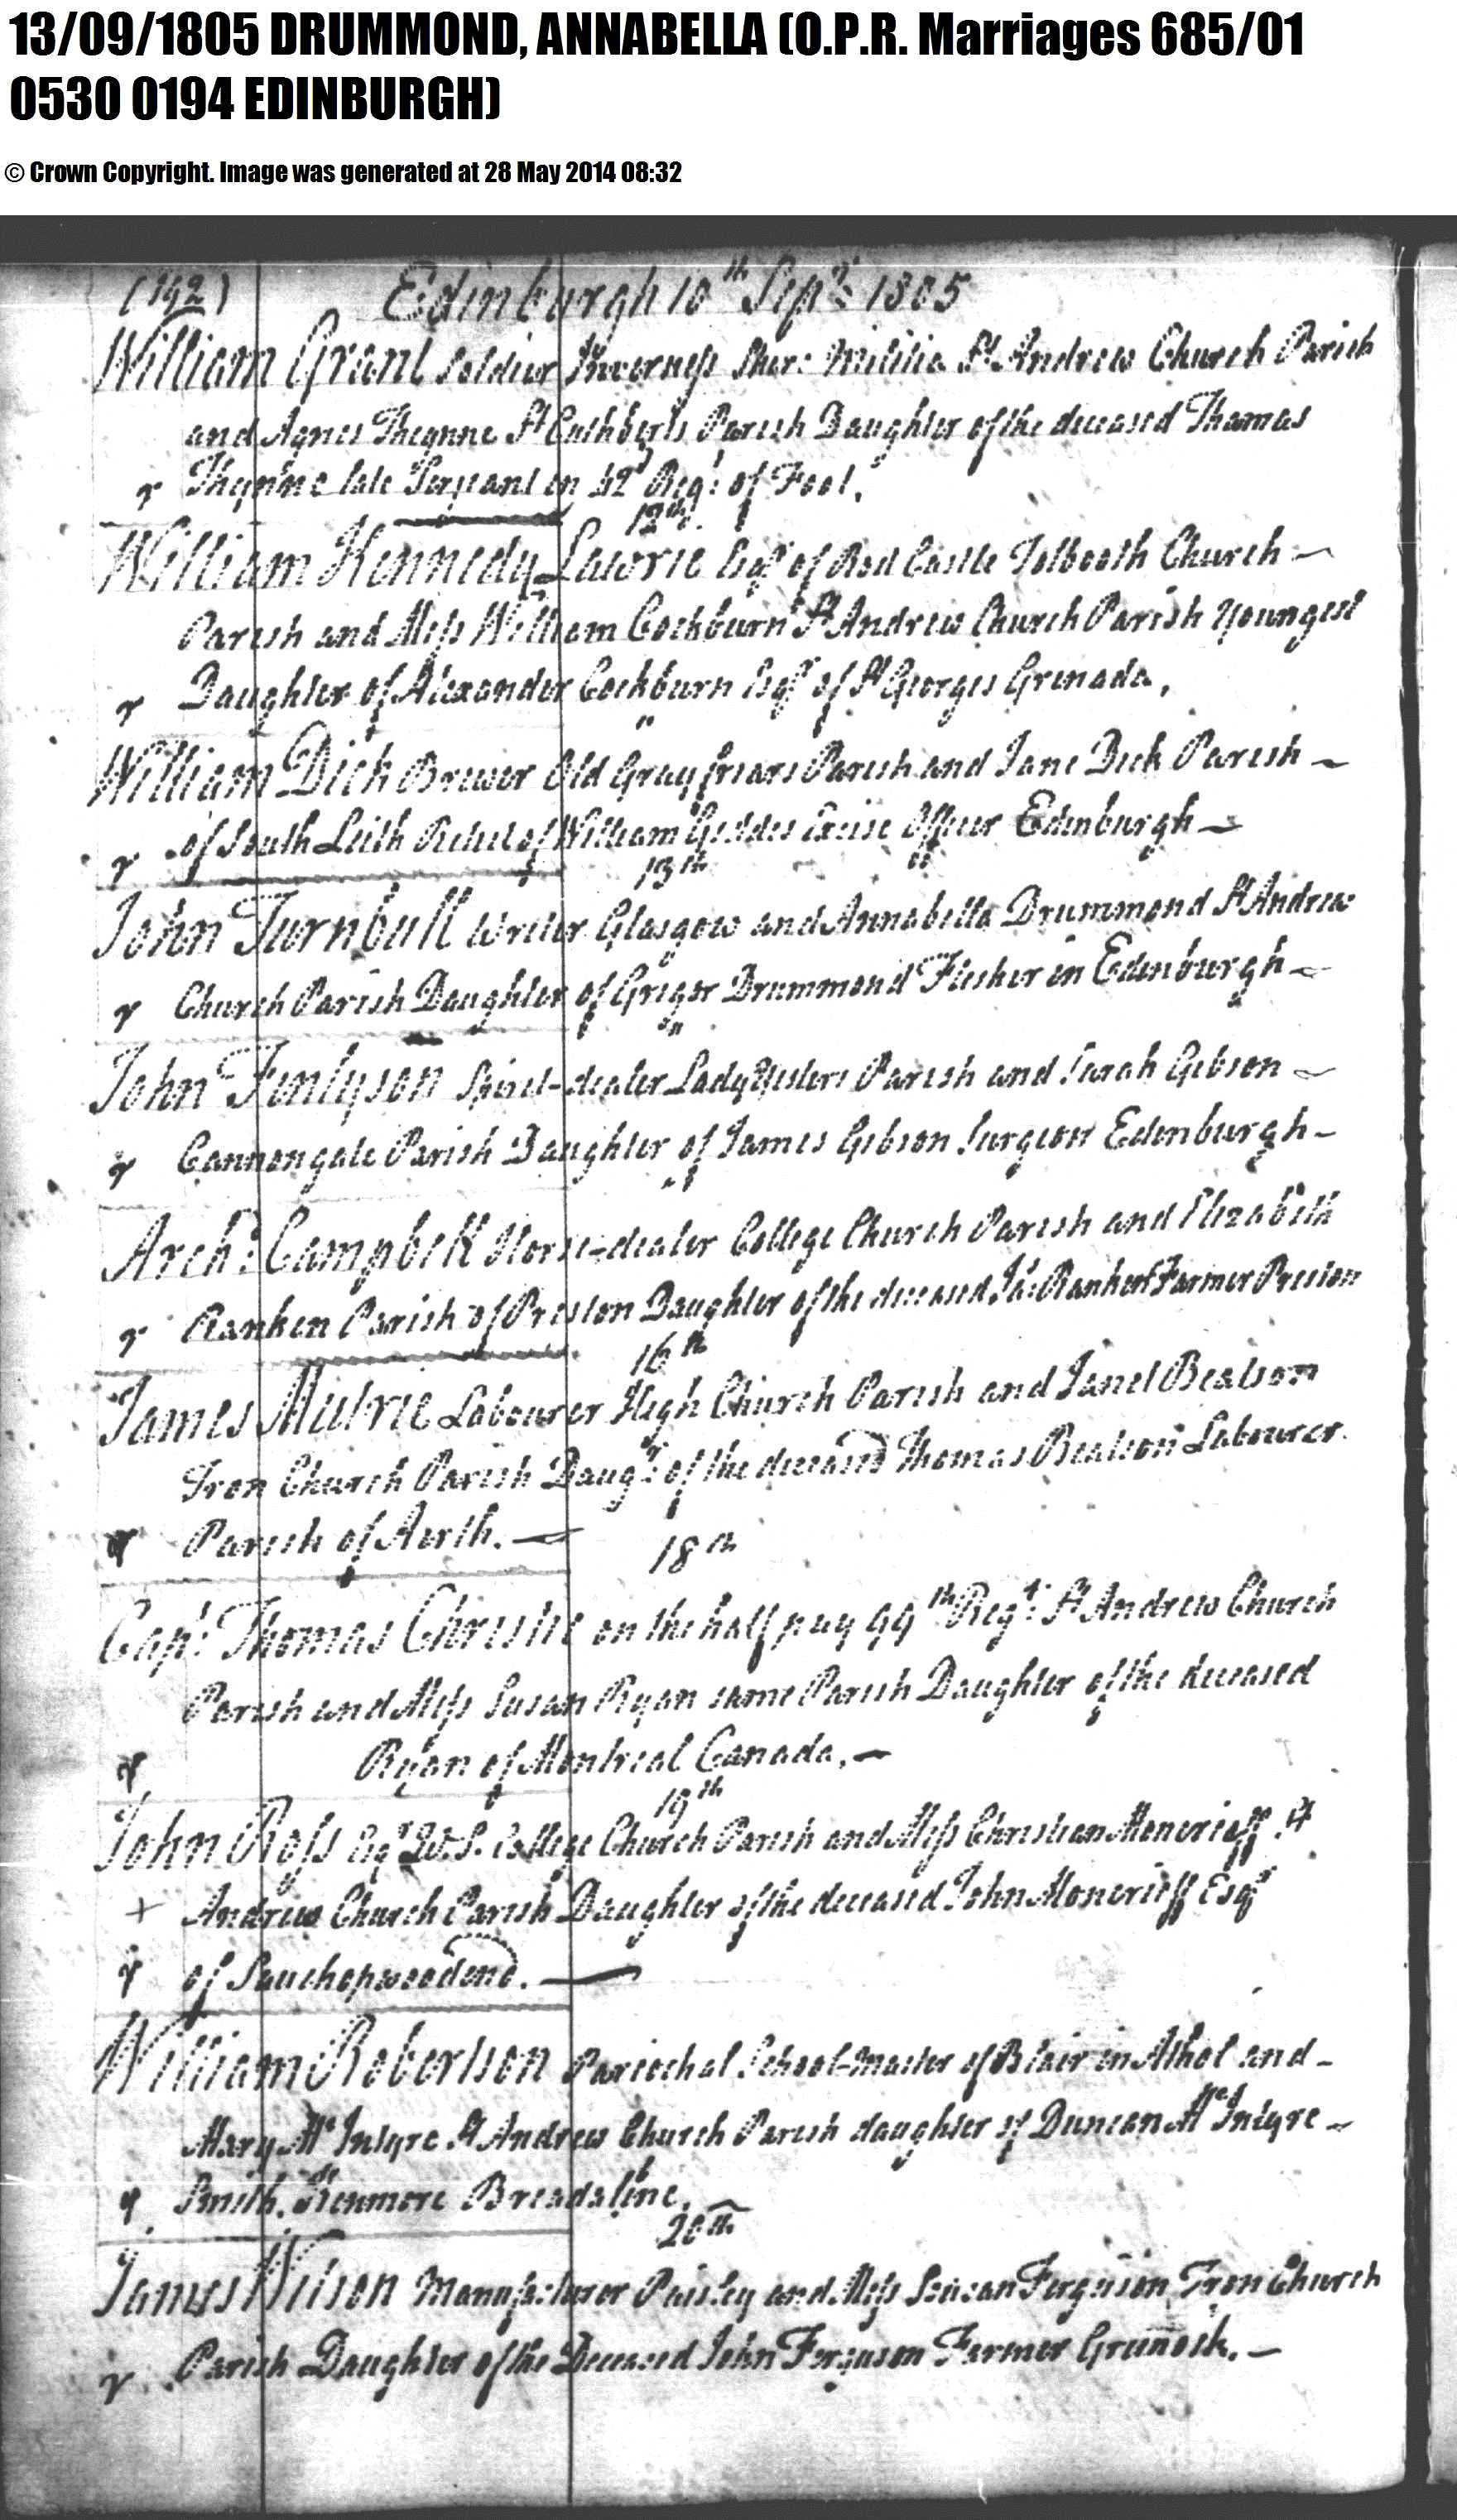 13/09/1805 DRUMMOND, ANNABELLA (O.P.R. Marriages 685/01
0530 0194 EDINBURGH)
© Crown Copyright. Image was generated at 28 May 2014 08:32
(192) Edinburgh 10th Sepr: 1805
William Grant Soldier Inverness Sher: Militia St Andrew Church Parish
and Agnes Thynne St Cuthberts Parish Daughter of the deceased Thomas
Thynne late Serjeant in 42d Regt: of Foot.
12th
William Kennedy Lawrie Esqr of Castle Tolbooth Church —
Parish and Miss William Cockburn St Andrew Church Parish Youngest
Daughter of Alexander Cockburn Esqr of St Georges Grenada.
"
William Dick Brewer Old Gray friars Parish and Jane Dick Parish —
of South Leith Relict of William Geddes Excise Officer Edinburgh —
13th
John Turnbull Writer Glasgow and Annabella Drummond St Andrew
Church Parish Daughter of Grigor Drummond Flesher in Edinburgh —
"
John Finlyson Spirit-dealer Lady Yesters Parish and Sarah Gibson —
Cannongate Parish Daughter of James Gibson Surgeon Edinburgh —
"
Archd: Campbell Horse-dealer College Church Parish and Elizabeth
Ranken Parish of Preston Daughter of the deceased Jas: Ranken Farmer Preston
16th
James Labourer High Church Parish and Janet Beatson
Tron Church Parish Daugr: of the deceased Thomas Beatson Labourer
Parish of Airth. —
18th
Capt: Thomas Christie on the half pay 99th Regt: St Andrew Church
Parish and Miss Susan Ryan same Parish Daughter of the deceased
Ryan of Montreal Canada. —
19th
John Ross Esqr W.S. College Church Parish and Miss Christian Moncrieff St
+ Andrew Church Parish Daughter of the deceased John Moncrieff Esqr
of Sauchopwoodend. —
William Robertson Parochial School-master of Blair in Athol and —
Mary McIntyre St Andrew Church Parish daughter of Duncan McIntyre —
Smith Kenmore Breadalbine. —
20th
James Wilson Manufacturer Paisley and Miss Ferguson Tron Church
Parish Daughter of the Deceased John Ferguson Farmer Greenock. —